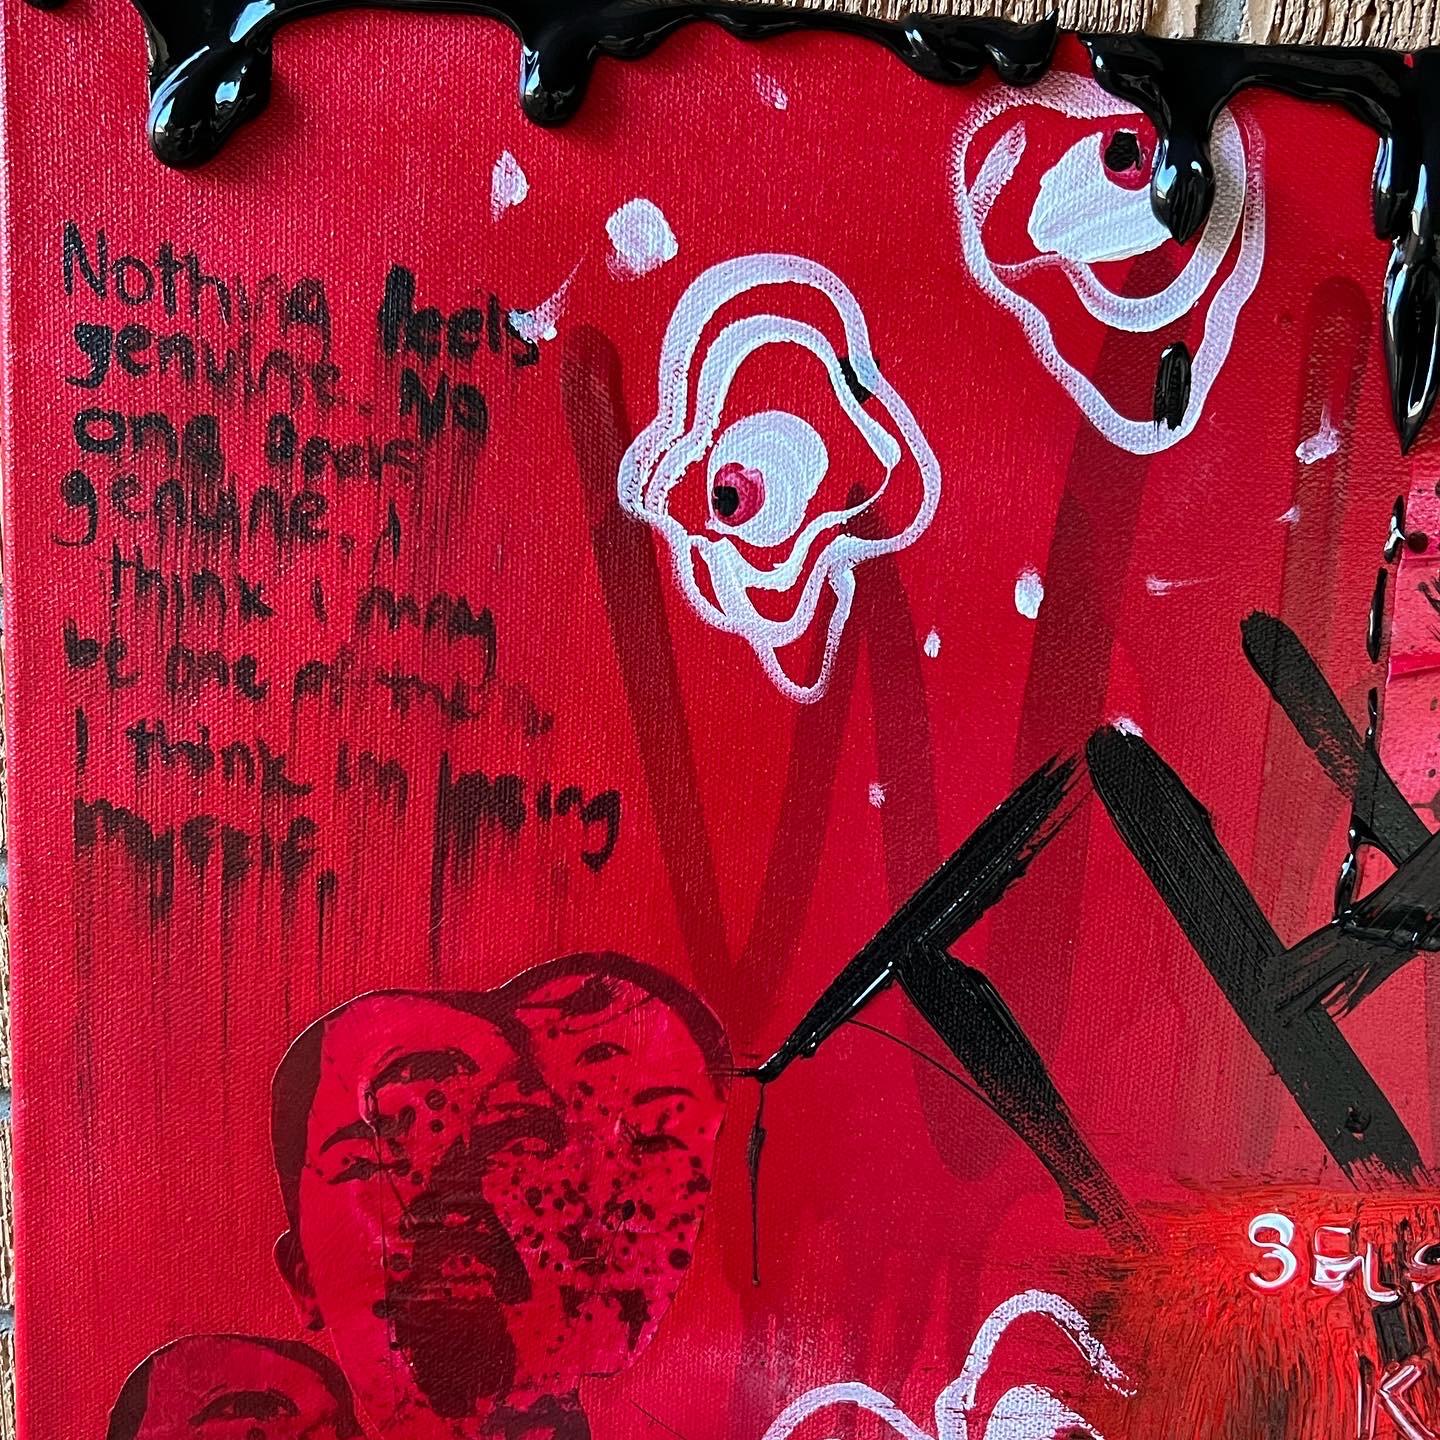 Nothing feels
genuine. No
one feels
genuine, i
think i may
be one of them
I think im losing
myself.
SELF
K